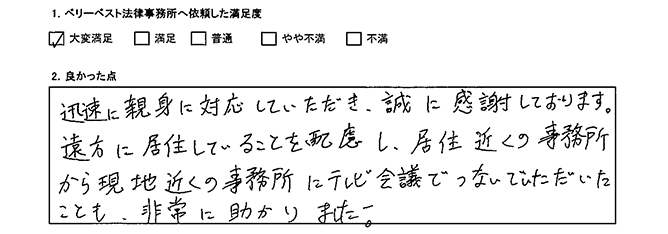 1. ベリーベスト法律事務所へ依頼した満足度
☑ 大変満足 □ 満足 □ 普通 □ やや不満 □ 不満
2. 良かった点
迅速に親身に対応していただき、誠に感謝しております。
遠方に居住していることを配慮し、居住近くの事務所
から現地近くの事務所にテレビ会議でつないでいただいた
ことも、非常に助かりました。